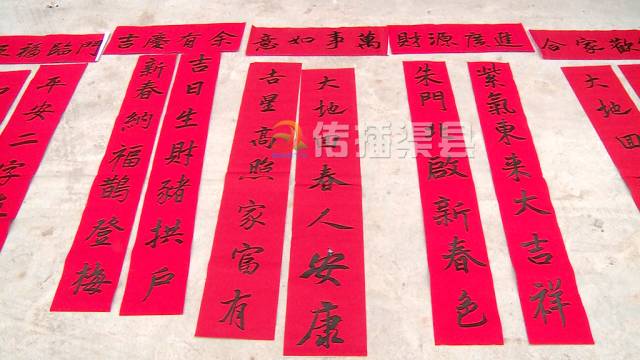 五福臨門
吉慶有余
意如事萬
財源廣進
合家歡
平安二字
新春納福鵲登梅
吉日生財豬拱戶
吉星高照家富有
大地回春人安康
朱門北啟新春色
紫氣東来大吉祥
大地回
传播渠县